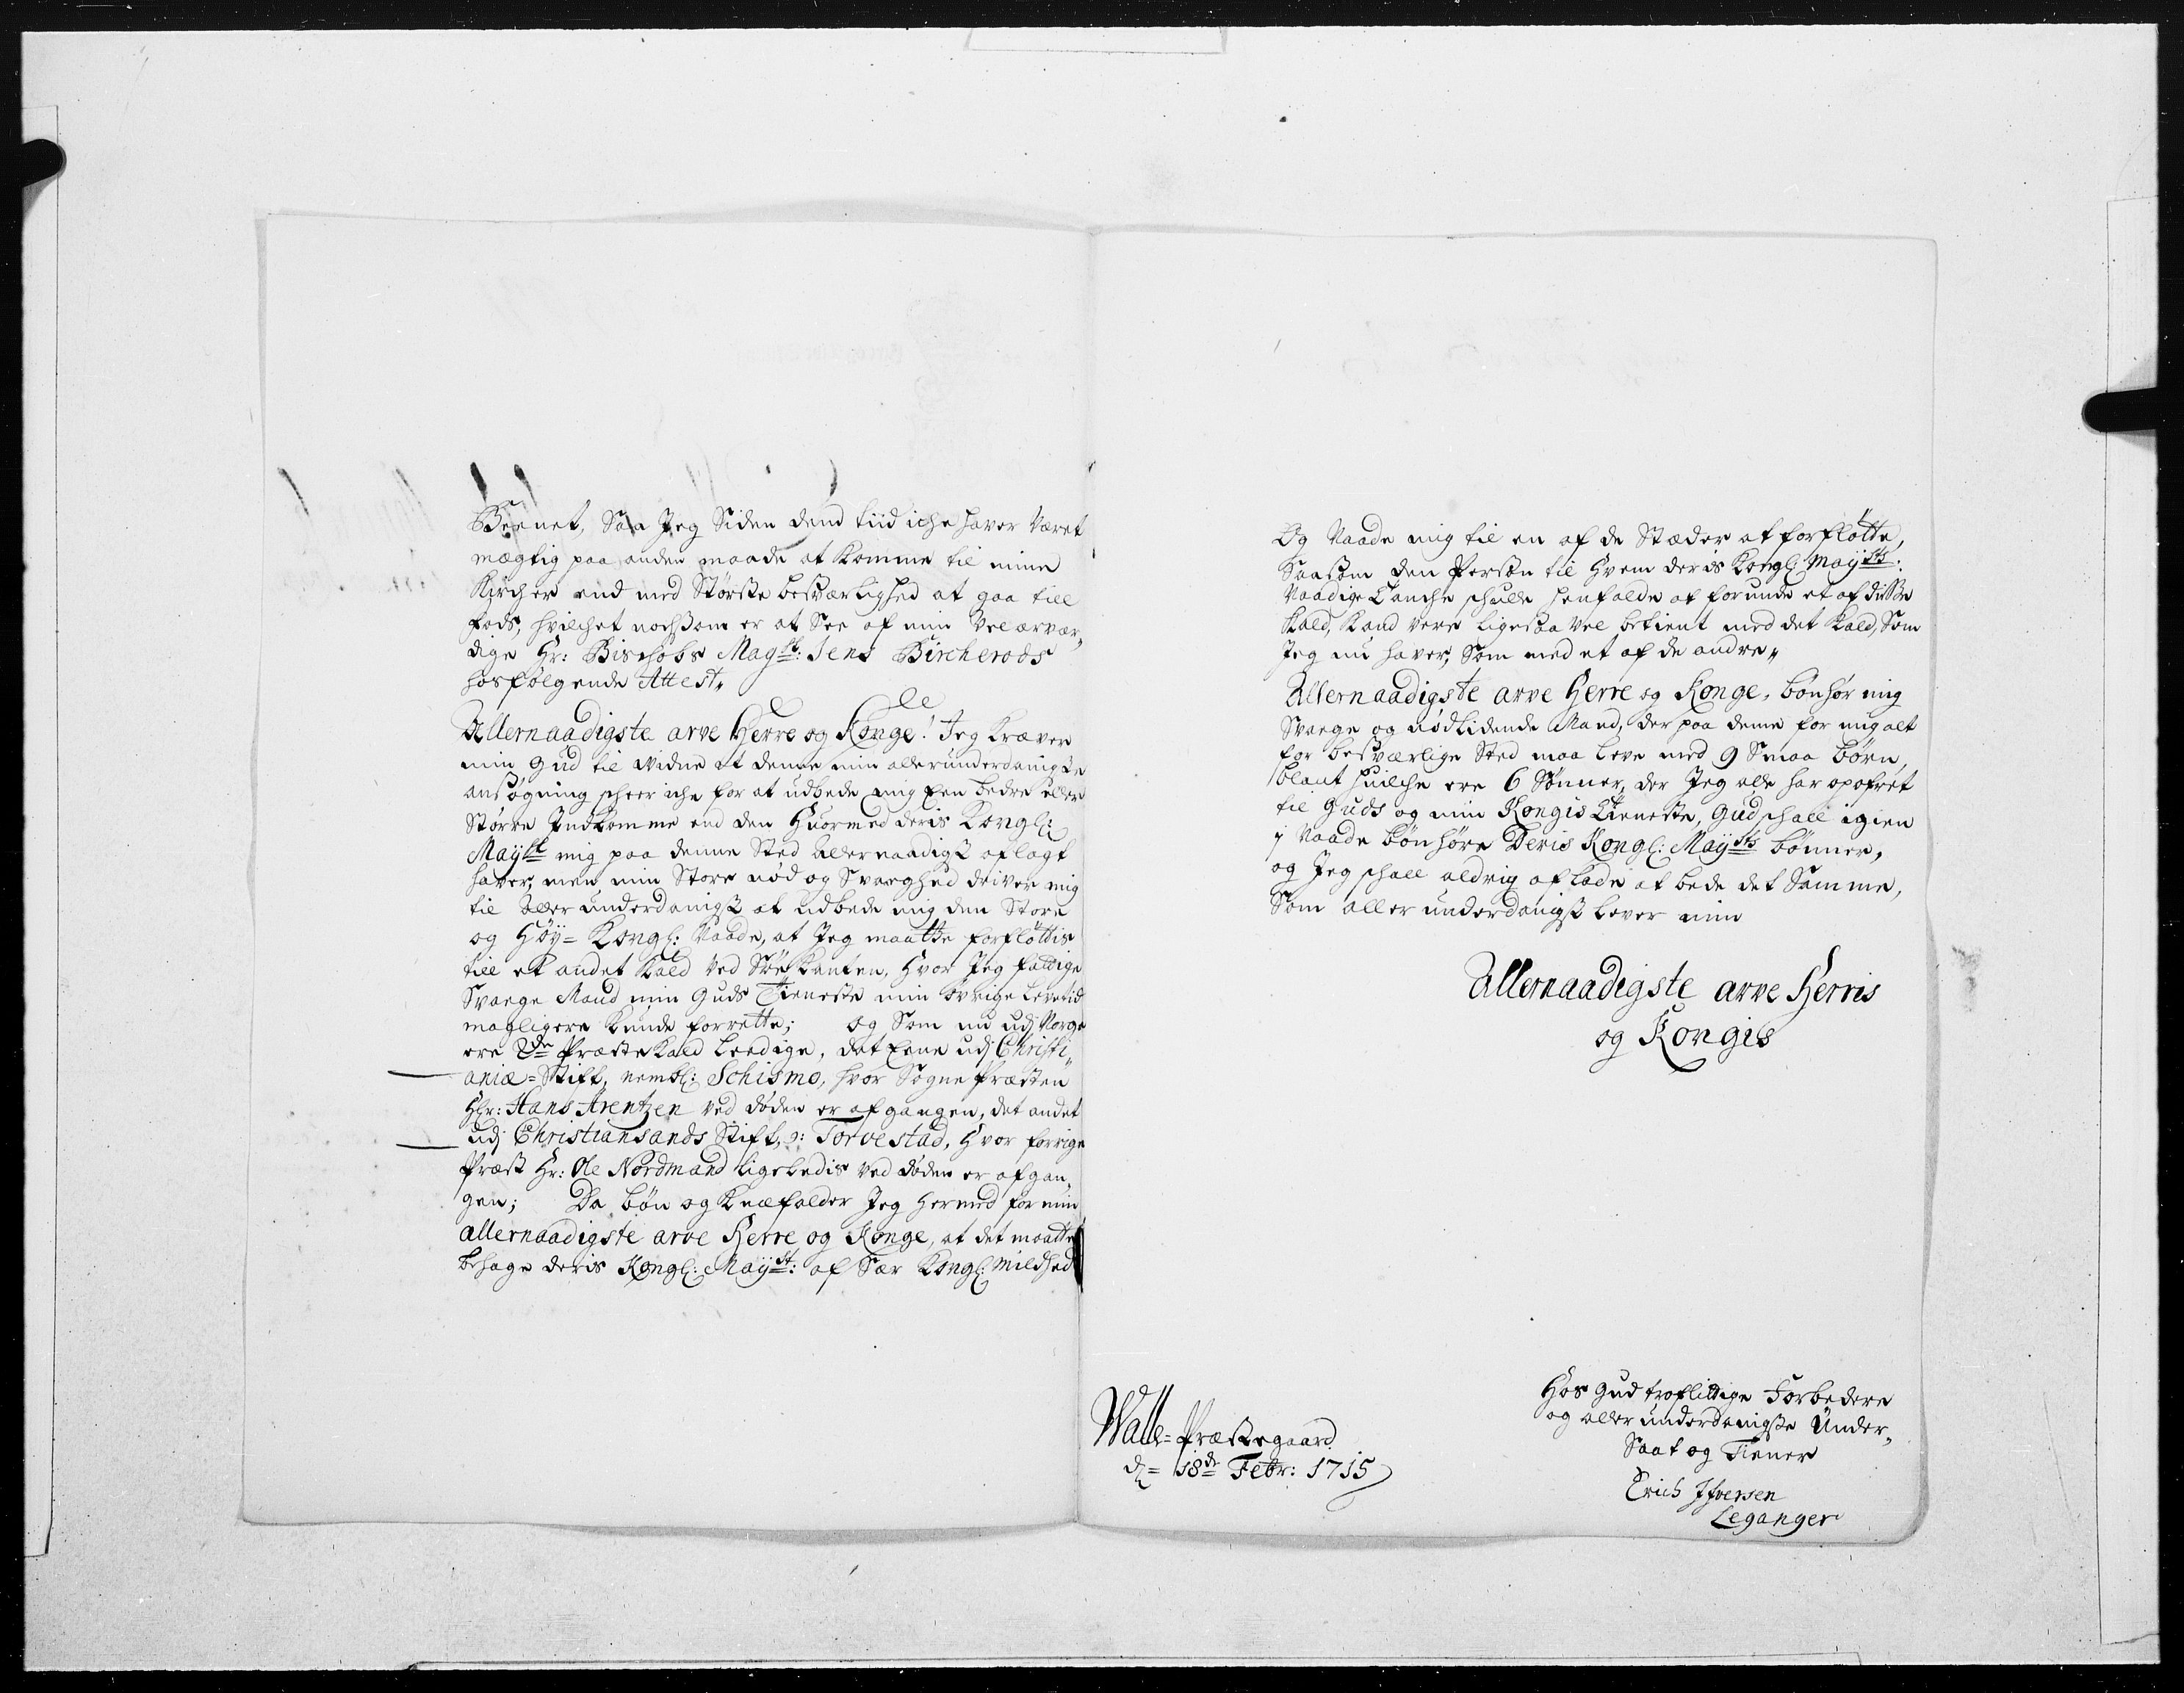 Beenet, Saa Jeg Siden dend tiid iche haver Været
mægtig paa anden maade at Komme til mine
Kircher end med Störste besværlighed at gaa till
fods, hvilchet nochsom er at See af min Velærvær„
dige Hr: Bischobs Magst: Jens Bircherods
hosfölgende Attest„
Allernaadigste arve Herre og Konge! Jeg Kræver
min Gud til Widne at denne min allerunderdanigste
ansögning scheer iche for at udbede mig Een bedre eller
Större Indkomme end den Hvormed deris Kongl:
Mayst mig paa denne Sted Allernaadigst aflagt
haver, men min Store nöd og Svaghed driver mig
til Aller underdanigst at udbede mig den Store
og Höy= Kongl: Naade, at Jeg maatte forflöttis
till et andet Kald ved Söe Kanten, Hvor Jeg fattige
Svage Mand min Guds Tieneste min övrige Levetid
magligere Kunde forrette; og Som nu udj Norge
ere 2de Præste Kald Leedige, det Eene udj Christi„
aniæ=Stift, nembl: Schismo, hvor Sogne Præsten
Hr: Hans Arentzen ved döden er afgangen, det andet
udj Christiansands Stift, ɔ: Torvestad, Hvor forrige
Præst Hr: Ole Nordmand ligeledis ved döden er afgan„
gen; Da bön og Knæfalder Jeg hermed for min
allernaadigste arve Herre og Konge, at det maatte
behage deris Kongl: Mayst: af Sær Kongl: Mildhed
Og Naade mig til en af de Stæder at forflötte,
Saasom den Person til Hvem deris Kongl Maysts:
Naadige Tanche schulle henfalde at forunde et af disse
Kald, Kand være ligesaa vel betient med det Kald, Som
Jeg nu haver, Som med et af de andre„
Allernaadigste arve Herre og Konge, bönhör mig
Svage og nödlidende Mand, der paa denne for mig alt
for besværlige Sted maa leve med 9 Smaa börn,
blant huilche ere 6 Sönner, der Jeg alle har opofret
til Guds og min Kongis Tieneste, Gud schall igien
i Naade bönhöre Deris Kongl: Maysts bönner,
og Jeg schall aldrig aflade at bede det Samme,
Som aller underdanigst lever min
Allernaadigste arve Herris
og Kongis
Hos Gud troflittige Forbedere
og aller underdanigste Under„
Saat og Tiener
Erich Ifversen
Leganger
Walle= Præstegaard
d= 18de Febr: 1715